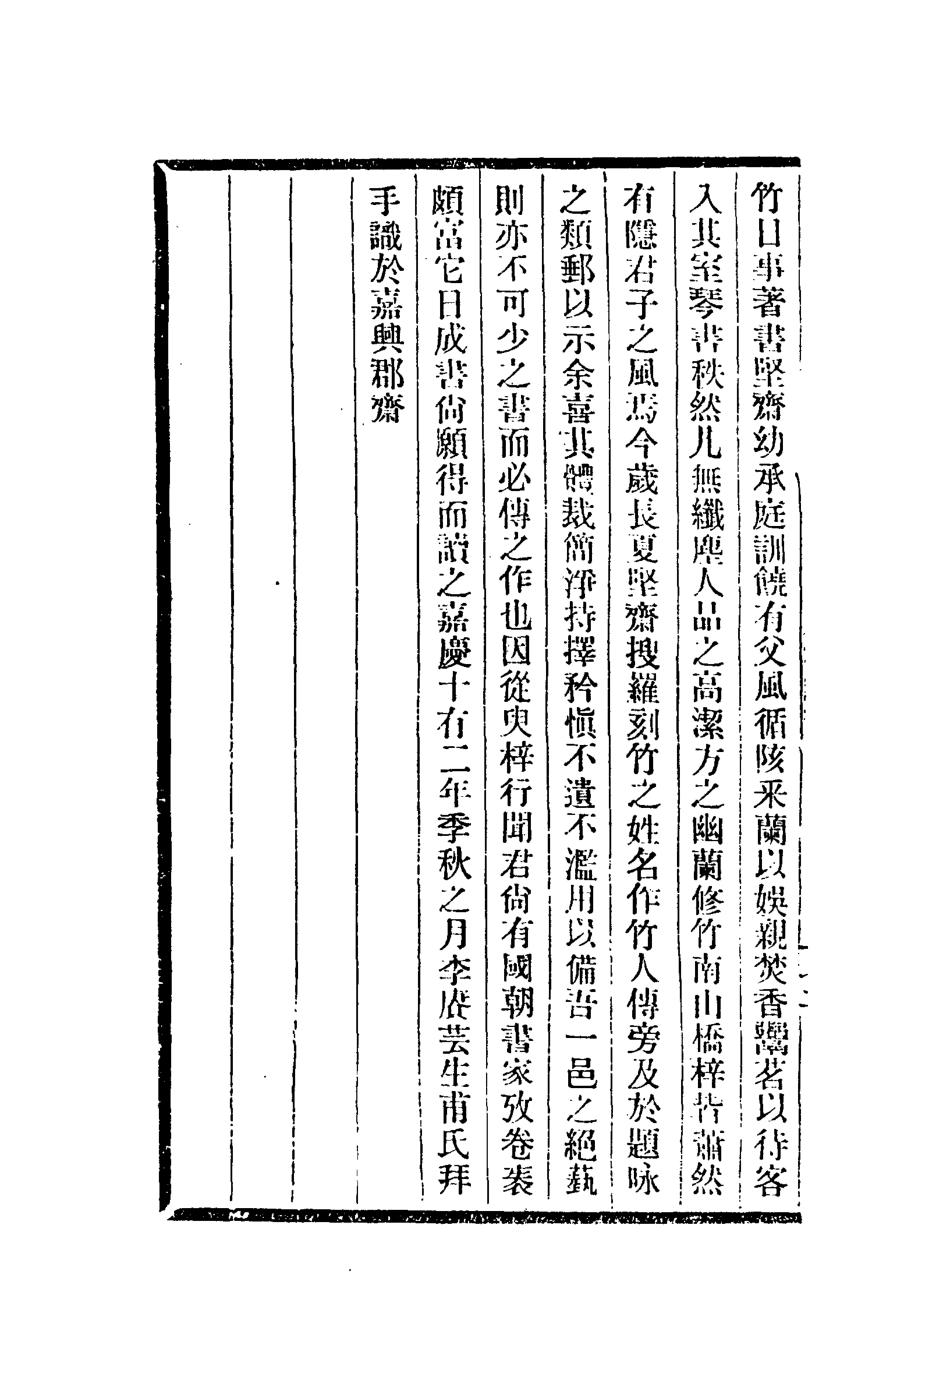 竹日事著書堅齋幼承庭訓饒有父風循陔采蘭以娛親焚香鬻茗以待客
入其室琴書秩然几無纖塵人品之高潔方之幽蘭修竹南山橋梓皆蕭然
有隱君子之風焉今歲長夏堅齋搜羅刻竹之姓名作竹人傳旁及於題咏
之類郵以示余喜其體裁簡淨持擇矜愼不遺不濫用以備吾一邑之絕藝
則亦不可少之書而必傳之作也因從臾梓行聞君尙有國朝書家攷卷袠
頗富它日成書尙願得而讀之嘉慶十有二年季秋之月李賡芸生甫氏拜
手識於嘉興郡齋